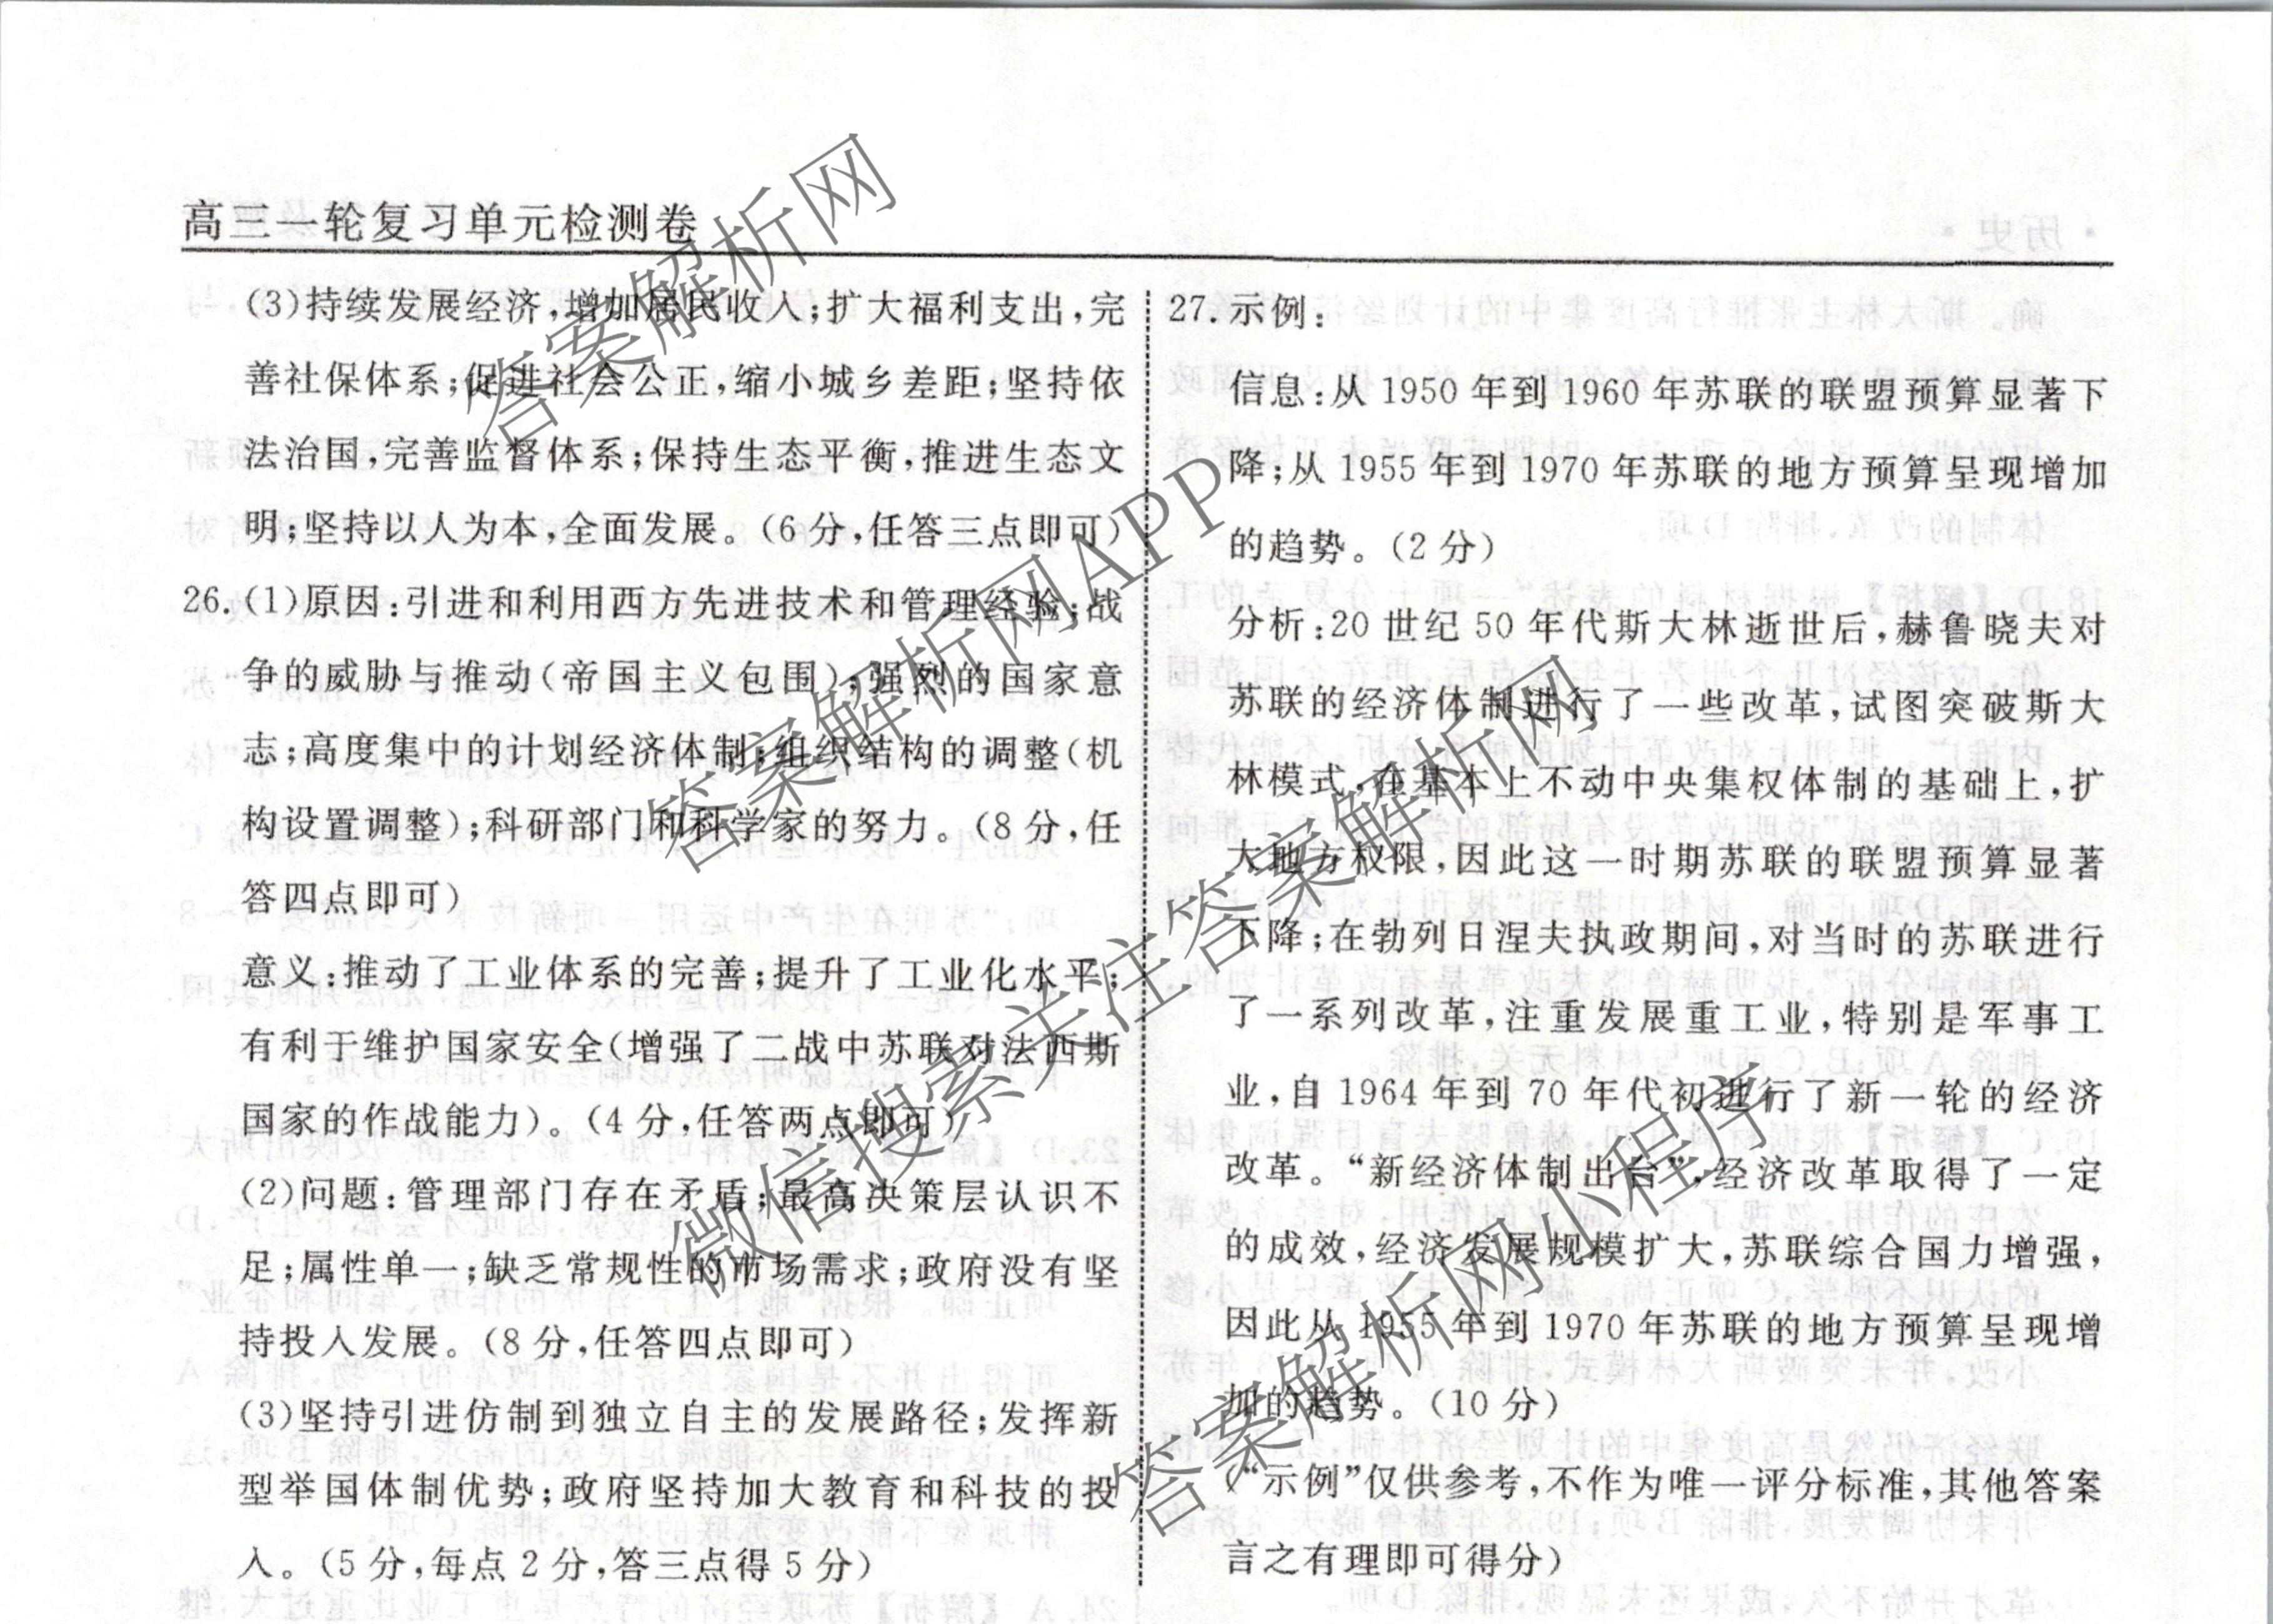 高三一轮复习单元检测卷
(3)持续发展经济,增加居民收入;扩大福利支出,完
善社保体系;促进社会公正,缩小城乡差距;坚持依
法治国,完善监督体系;保持生态平衡,推进生态文
明;坚持以人为本,全面发展。(6分,任答三点即可)
26.(1)原因:引进和利用西方先进技术和管理经验;战
争的威胁与推动(帝国主义包围);强烈的国家意
志;高度集中的计划经济体制;组织结构的调整(机
构设置调整);科研部门和科学家的努力。(8分,任
答四点即可)
意义:推动了工业体系的完善;提升了工业化水平;
有利于维护国家安全(增强了二战中苏联对法西斯
国家的作战能力)。(4分,任答两点即可)
(2)问题:管理部门存在矛盾;最高决策层认识不
足;属性单一;缺乏常规性的市场需求;政府没有坚
持投入发展。(8分,任答四点即可)
(3)坚持引进仿制到独立自主的发展路径;发挥新
型举国体制优势;政府坚持加大教育和科技的投
入。(5分,每点2分,答三点得5分)
27.示例:
信息:从1950年到1960年苏联的联盟预算显著下
降;从1955年到1970年苏联的地方预算呈现增加
的趋势。(2分)
分析:20世纪50年代斯大林逝世后,赫鲁晓夫对
苏联的经济体制进行了一些改革,试图突破斯大
林模式,在基本上不动中央集权体制的基础上,扩
大地方权限,因此这一时期苏联的联盟预算显著
下降;在勃列日涅夫执政期间,对当时的苏联进行
了一系列改革,注重发展重工业,特别是军事工
业,自1964年到70年代初进行了新一轮的经济
改革。“新经济体制出台”,经济改革取得了一定
的成效,经济发展规模扩大,苏联综合国力增强,
因此从1955年到1970年苏联的地方预算呈现增
加的趋势。(10分)
(“示例”仅供参考,不作为唯一评分标准,其他答案
言之有理即可得分)
答案解析网
答案解析网APP
微信搜索关注答案解析网
答案解析网小程序